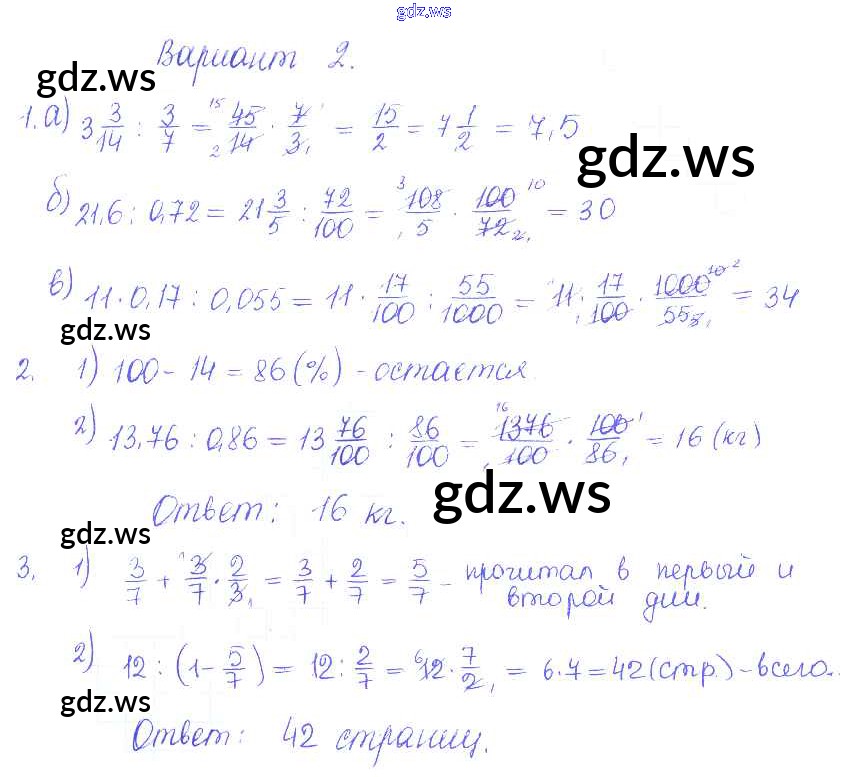 gdz.ws
Вариант 2.
gdz.ws
1. а) 3 3/14 : 3/7 = 45/14 · 7/3 = 15/2 = 7 1/2 = 7,5
gdz.ws
б) 21,6 : 0,72 = 21 3/5 : 72/100 = 108/5 · 100/72 = 30
в) 11 · 0,17 : 0,055 = 11 · 17/100 : 55/1000 = 11 · 17/100 · 1000/55 = 34
gdz.ws
2. 1) 100 - 14 = 86 (%) - остается.
2) 13,76 : 0,86 = 13 76/100 : 86/100 = 1376/100 · 100/86 = 16 (кг)
gdz.ws
Ответ: 16 кг.
gdz.ws
3. 1) 3/7 + 3/7 · 2/3 = 3/7 + 2/7 = 5/7 - прочитал в первый и
второй дни.
2) 12 : (1 - 5/7) = 12 : 2/7 = 12 · 7/2 = 6 · 7 = 42 (стр.) - всего.
gdz.ws
Ответ: 42 страниц.